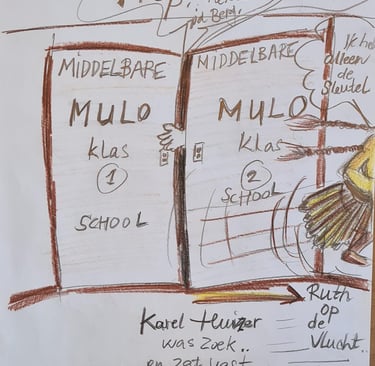 MIDDELBARE
MULO
Klas
1
SCHOOL
MIDDELBARE
MULO
Klas
2
SCHOOL
Ik heb
alleen
de
Sleutel
Ruth
op
de
Vlucht..
Karel Huizer
was zoek..
en zat vast